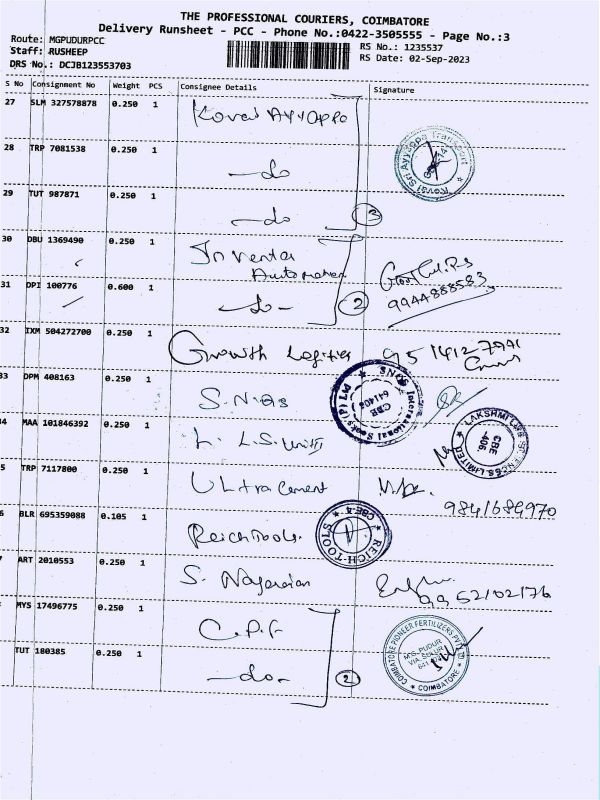 THE PROFESSIONAL COURIERS, COIMBATORE
Delivery Runsheet - PCC - Phone No.:0422-3505555 - Page No.:3
Route: MGPUDURPCC
RS No.: 1235537
Staff: RUSHEEP
RS Date: 02-Sep-2023
DRS No.: DCJB123553703
S No Consignment No Weight PCS Consignee Details Signature
27 SLM 327578878 0.250 1 Kovai Ayyappa
28 TRP 7081538 0.250 1 -do
Kovai Sri Ayyappa Transport
29 TUT 987871 0.250 1 -do
3
30 DBU 1369490 0.250 1 Inventa
Automation
31 DPI 100776 0.600 1 -do-
2
9944888583
32 IXM 504272700 0.250 1 Growth Logities
33 DPM 408163 0.250 1 S.N.Q.S
SNQS International Socks (P) Ltd
CBE
641406
4 MAA 101846392 0.250 1
LAKSHMI LIFE SCIENCES LIMITED
CBE
-406
5 TRP 7117800 0.250 1 Ultra cement
9841689970
6 BLR 695359088 0.105 1 Reich Tools.
REICH-TOOLS
CBE-4
ART 2010553 0.250 1 S. Nagarajan
9952102176
MYS 17496775 0.250 1 C.P.F
COIMBATORE PIONEER FERTILIZERS PVT LTD
M.G. PUDUR
VIA. SULUR
COIMBATORE
TUT 180385 0.250 1 -do-
2